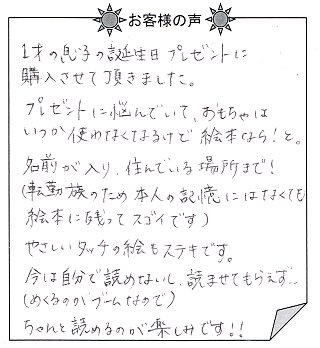 お客様の声
1才の息子の誕生日プレゼントに
購入させて頂きました。
プレゼントに悩んでいて、おもちゃは
いつか使わなくなるけど絵本なら!と。
名前が入り、住んでいる場所まで!
(転勤族のため本人の記憶にはなくても
絵本に残ってスゴイです)
やさしいタッチの絵もステキです。
今は自分で読めないし、読ませてもらえず…
(めくるのがブームなので)
ちゃんと読めるのが楽しみです!!